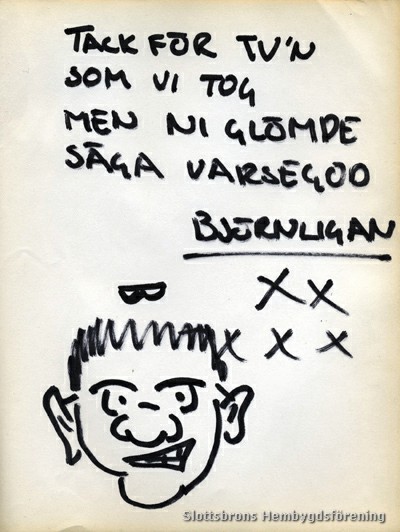 TACK FÖR TV'N
SOM VI TOG
MEN NI GLÖMDE
SÄGA VARSEGOD
BJÖRNLIGAN
X X
X X X
Slottsbrons Hembygdsförening